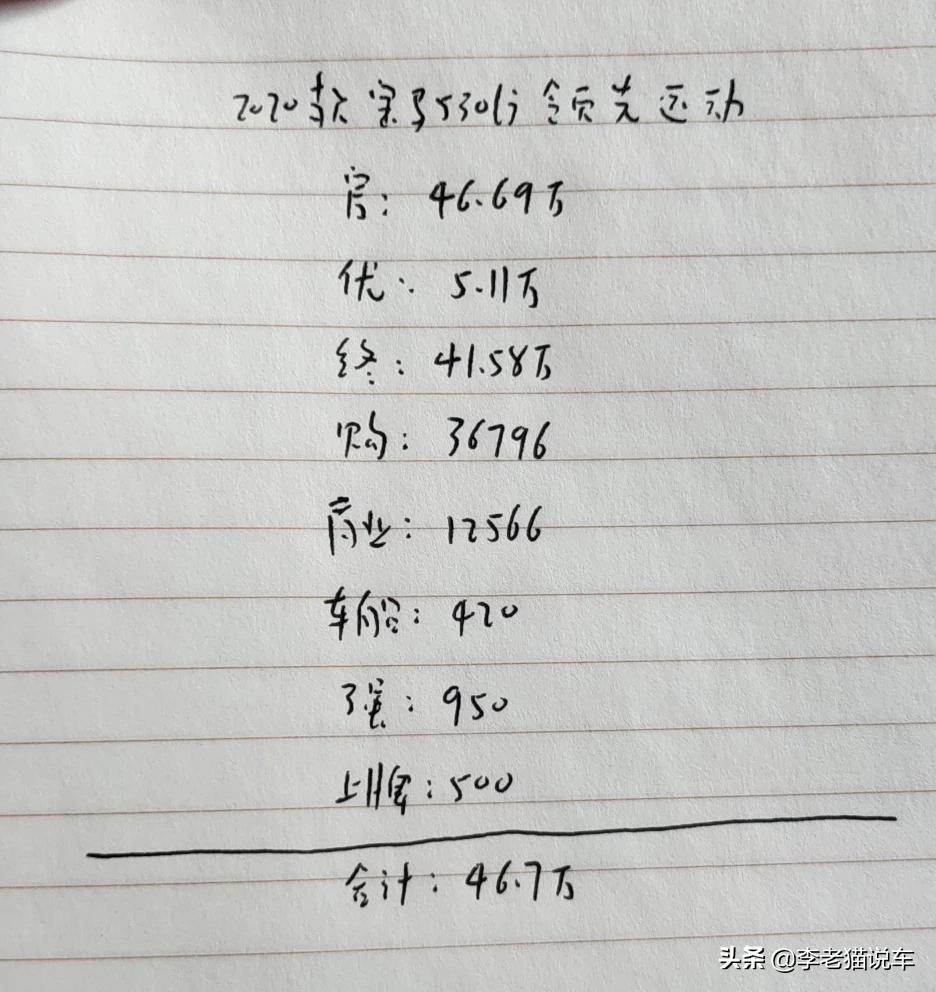 2020款宝马530li领先运动
官: 46.69万
优: 5.11万
终: 41.58万
购: 36796
商业: 12566
车船: 420
强: 950
上牌: 500
合计: 46.7万
头条 @李老猫说车